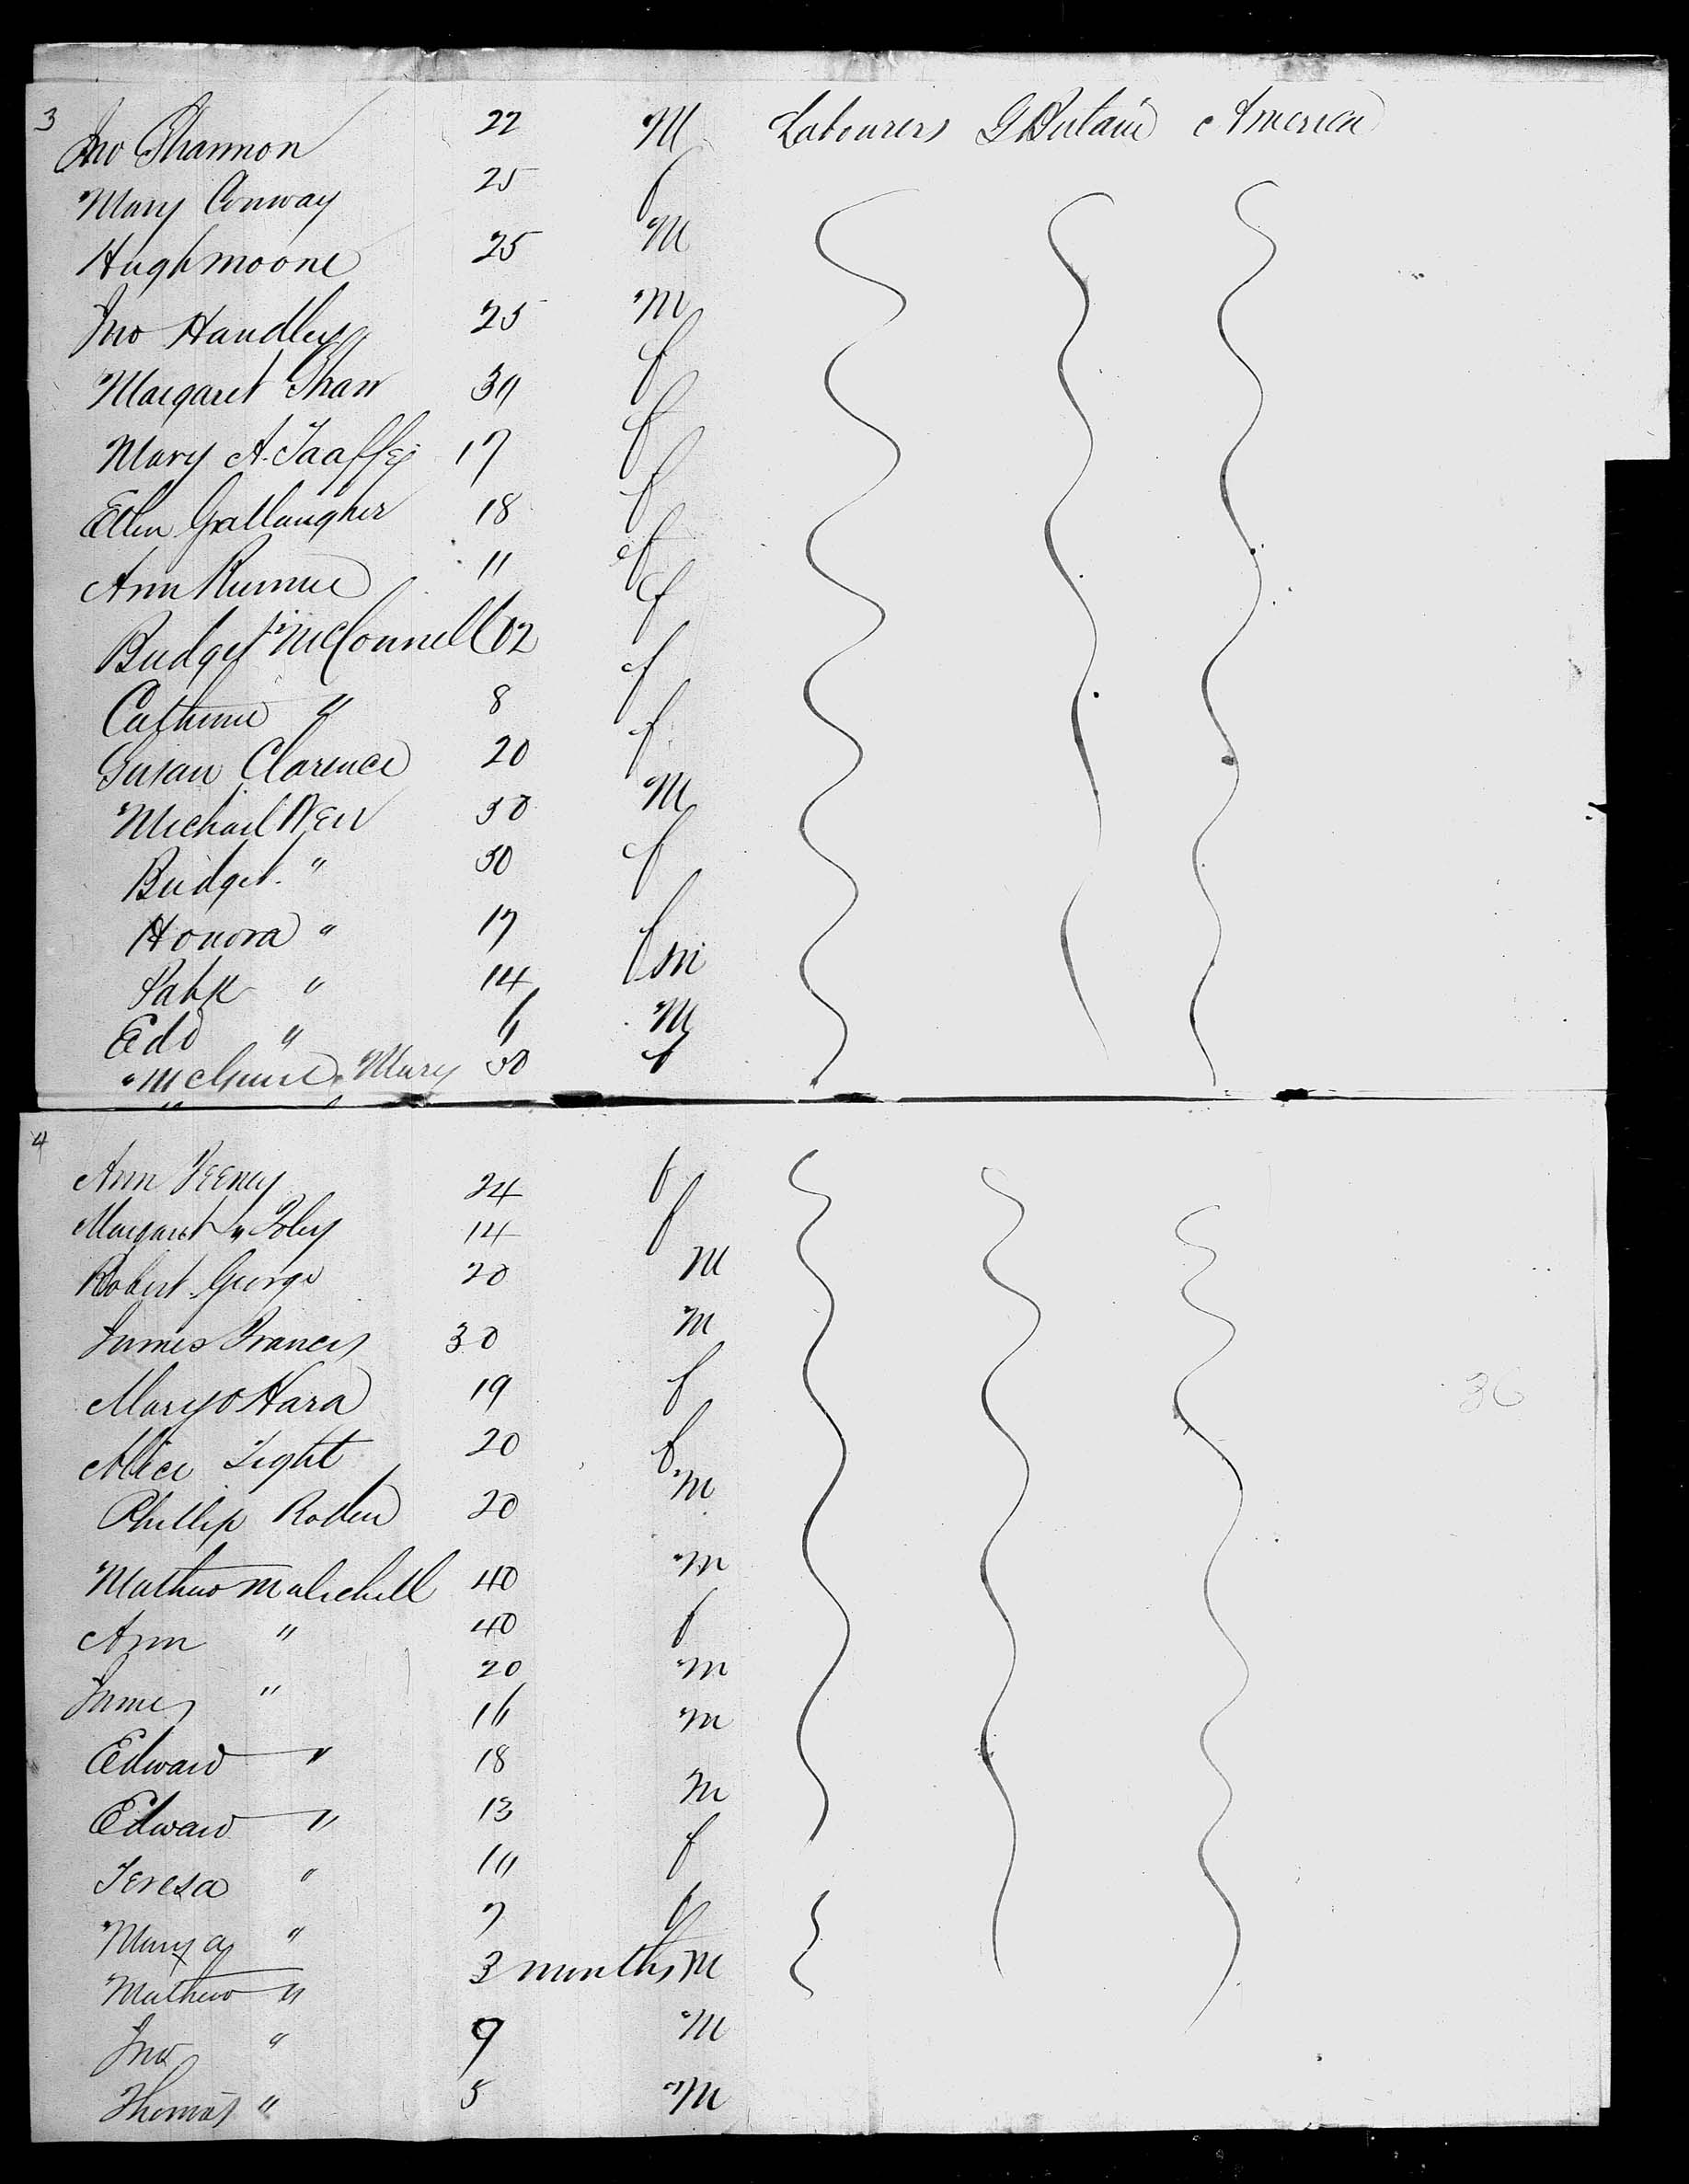 3
Jno Shannon 22 M Labourers G Britain America
Mary Conway 25 f
Hugh Moone 25 M
Jno Handley 25 M
Margaret Shaw 30 f
Mary A. Taaffe 17 f
Ellen Gallaugher 18 f
Ann 11 f
Bridget McConnell 02 f
Catherine " 8 f
Susan Clarence 20 f
Michael Weir 50 M
Bridget " 50 f
Honora " 17 f
Patk " 14 M
Edd " 6 M
McGuire Mary 50 f
4
Ann Feeney 24 f
Margaret " Foley 14 f
Robert George 20 M
James Francis 30 M
Mary O Hara 19 f
Alice Light 20 f
Phillip Roden 20 M
Mathew Malichill 40 M
Ann " 40 f
James " 20 M
Edward " 18 M
Edward " 13 M
Teresa " 10 f
Mary A " 7 f
Mathew " 3 months M
Jno " 9 M
Thomas " 5 M
36